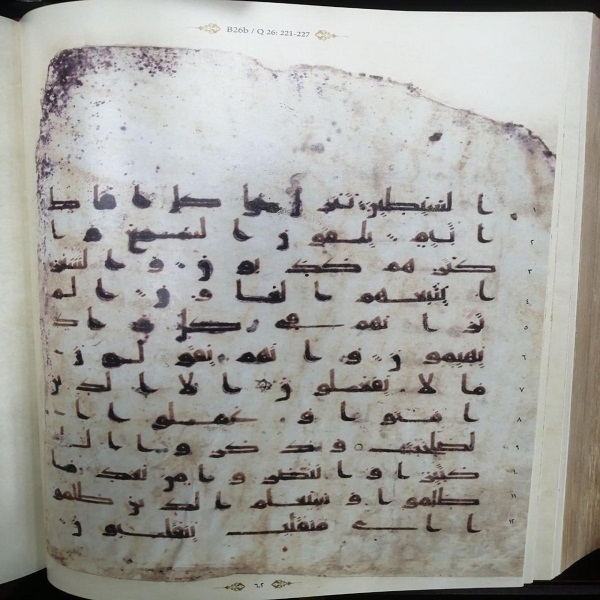 B26b / Q 26: 221-227
الشيطين تنزل على كل افاك
اثيم يلقون السمع وا
كثرهم كذبون والشعر
ا يتبعهم الغاون الم
تر انهم في كل واد
يهيمون وانهم يقولون
ما لا يفعلون الا الذين
امنوا وعملوا ا
لصلحت وذكروا الله
كثيرا وانتصروا من بعد ما
ظلموا وسيعلم الذين ظلمو
ا اي منقلب ينقلبون
٦٢